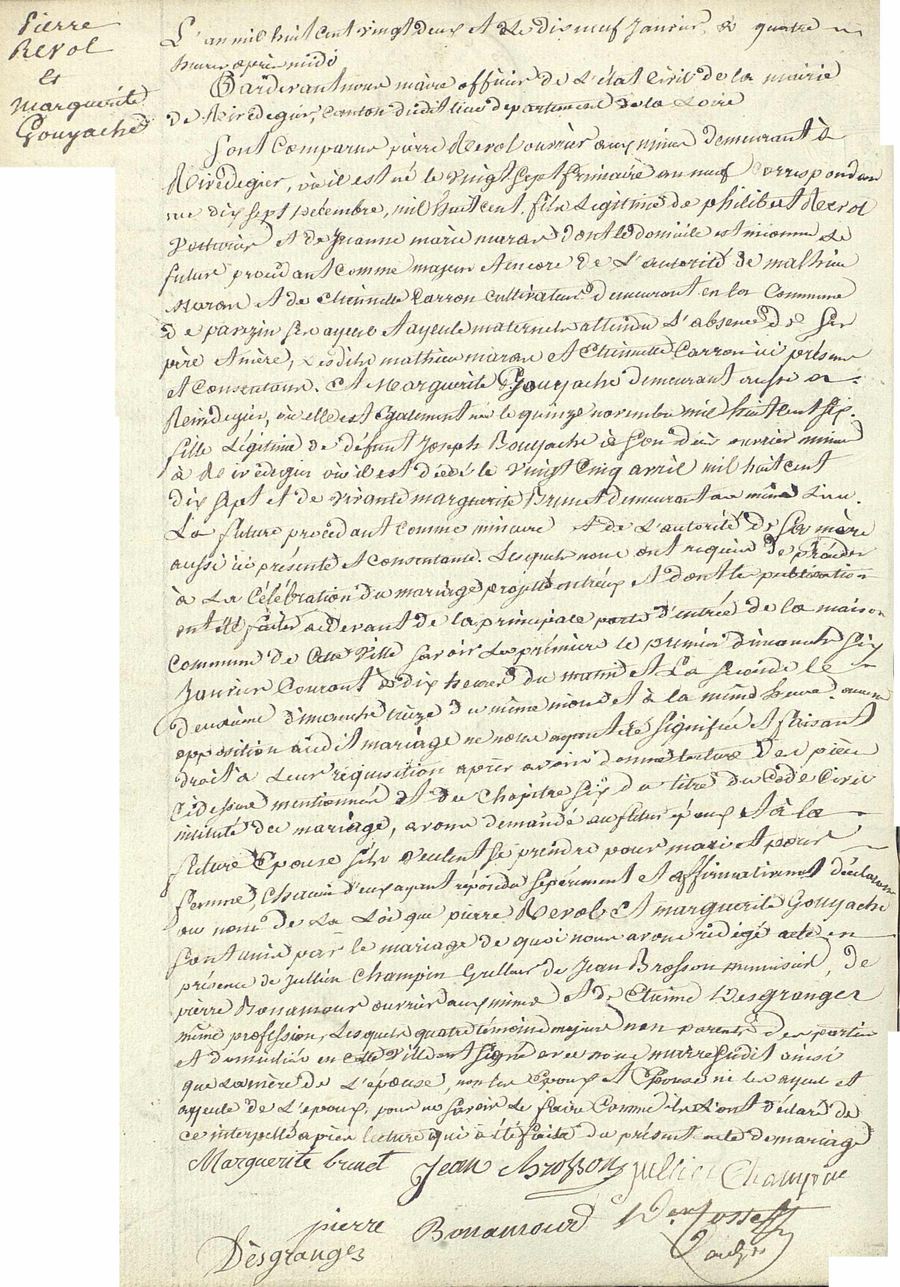 Pierre
Revol
et
Marguerite
Gouyache
L'an mil huit cent vingt deux et le dix neuf Janvier, à quatre
heures après midi
Pardevant nous maire officier de L'état Civil de la mairie
de Rivedegier, Canton dudit lieu departement de la Loire
Sont Comparus pierre Revol ouvrier aux mines demeurant à
Rivedegier, où il est né le Vingt Sept frimaire an neuf Correspondan
au dix sept Décembre, mil huit cent, fils Légitime de philibert Revol
Voiturier et de Jeanne marie maran dont le domicile est inconnu Le
futur procédant comme majeur et encore de L'autorité de mathieu
maran et de Etiennette Carron cultivateurs demeurant en la Commune
de pavezin ses ayeul et ayeule maternels attendu L'absence de Ses
père et mère, Lesdits mathieu maran et Etiennette Carron ici présens
et Consentans. Et Marguerite Gouyache demeurant aussi à
Rivedegier, où elle est Egalement née le quinze novembre mil huit cent six.
fille Légitime de défunt Joseph Gouyache à Son décès ouvrier mineur
à Rivedegier où il est décédé le Vingt Cinq avril mil huit cent
dix sept et de vivante marguerite Brunet demeurant au même Lieu.
La future procédant comme mineure et de L'autorité de Sa mère
aussi ici présente et consentante. Lesquels nous ont requis de procéder
à La Célébration du mariage projetté entr'eux et dont les publications
ont été faites audevant de la principale porte d'entrée de la maison
Commune de Cette Ville savoir La première le premier dimanche Six
Janvier Courant à dix heures du matin et La Seconde le
deuxième dimanche treize du même mois et à la même heure. aucune
opposition audit mariage ne nous ayant été Signifiée et faisant
droit à Leur réquisition après avoir donné lecture des pièces
Cidessus mentionnées et du Chapitre Six du titre du Code Civil
intitulé du mariage, avons demandé au futur époux et à la
future Epouse s'ils veulent se prendre pour mari et pour
femme, Chacun d'eux ayant répondu Séparément et affirmativement déclarons
au nom de La Loi que pierre Revol et marguerite Gouyache
Sont unis par le mariage de quoi nous avons rédigé acte en
présence de Jullien Champin Grilleur de Jean Brosson menuisier, de
pierre Bonamour ouvrier aux mines et de Etienne Desgranges
même profession, Lesquels quatre témoins majeurs non parents des parties
et domiciliés en Cette Ville ont Signé avec nous maire Susdit ainsi
que La mère de L'épouse, non les Epoux et Epouse ni les ayeul et
ayeule de L'epoux, pour ne savoir Le faire Comme ils L'ont déclaré de
ce interpellés après lecture qui a été faite du présent acte de mariage
Marguerite brunet Jean Brosson Jullien Champin
pierre Bonamour
Desgranges